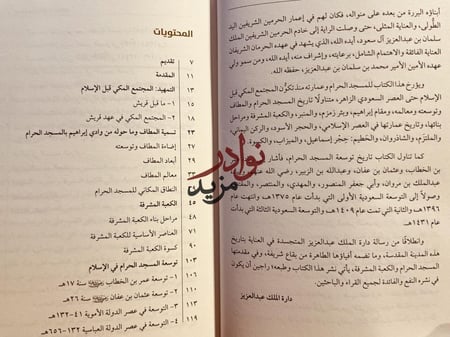 أبناؤه البررة من بعده على منواله، فكان لهم في إعمار الحرمين الشريفين اليد
الطولى، والعناية المثلى، حتى وصلت الراية إلى خادم الحرمين الشريفين الملك
سلمان بن عبدالعزيز آل سعود، أيده الله، الذي يشهد في عهده الحرمان الشريفان
العناية الفائقة والاهتمام الشامل، برعايته، وإشرافه، منه، أيده الله، ومن سمو ولي
عهده الأمين الأمير محمد بن سلمان بن عبدالعزيز، حفظه الله.
ويؤرخ هذا الكتاب للمسجد الحرام وعمارته منذ تكون المجتمع المكي قبل
الإسلام حتى العصر السعودي الزاهر، متناولًا تاريخ المسجد الحرام والمطاف
وتوسعته ومعالمه، ومقام إبراهيم، وبئر زمزم، والمنبر، والكعبة المشرفة ومراحل
بنائها، وتاريخ عمارتها في العصر الإسلامي، والحجر الأسود، والركن اليماني،
والملتزم، والشاذروان، والحطيم: حجر إسماعيل، والميزاب، والكسوة.
كما تناول الكتاب تاريخ توسعة المسجد الحرام، فأشار
بن الخطاب، وعثمان بن عفان، وعبدالله بن الزبير، رضي الله
عبدالملك بن مروان، وأبي جعفر المنصور، والمهدي، والمنتصر، والمقتدر،
وصولًا إلى التوسعة السعودية الأولى التي بدأت عام ١٣٧٥هـ، وانتهت عام
١٣٩٦هـ، والثانية التي تمت عام ١٤٠٩هـ، والتوسعة السعودية الثالثة التي بدأت
عام ١٤٣١هـ.
وانطلاقًا من رسالة دارة الملك عبدالعزيز المتجسدة في العناية بتاريخ
هذه المدينة المقدسة، وما تضمه أفياؤها الطاهرة من بقاع شريفة، وفي مقدمتها
المسجد الحرام والكعبة المشرفة، يأتي نشر هذا الكتاب وطبعه؛ داعين أن يجعل
في نشره النفع والفائدة لجميع القراء والباحثين.
دارة الملك عبدالعزيز
المحتويات
تقديم ٧
المقدمة ١١
التمهيد: المجتمع المكي قبل الإسلام ١٣
١- ما قبل قريش ١٥
٢- المجتمع المكي في عهد قريش ١٨
تسمية المطاف وما حوله من وادي إبراهيم بالمسجد الحرام ٢٣
إضاءة المطاف وتوسعته
أبعاد المطاف
معالم المطاف ٣٣
النطاق المكاني للمسجد الحرام
الكعبة المشرفة ٤٥
مراحل بناء الكعبة المشرفة
العناصر الأساسية للكعبة المشرفة
كسوة الكعبة المشرفة ٩٠
توسعة المسجد الحرام في الإسلام ١٠٣
١- توسعة عمر بن الخطاب سنة ١٧هـ ١٠٦
٢- توسعة عثمان بن عفان سنة ٢٦هـ
٣- التوسعة في عصر الدولة الأموية ٤١-١٣٢هـ
٤- التوسعة في عصر الدولة العباسية ١٣٢-٦٥٦هـ ١١٩
نوادر
مزيد